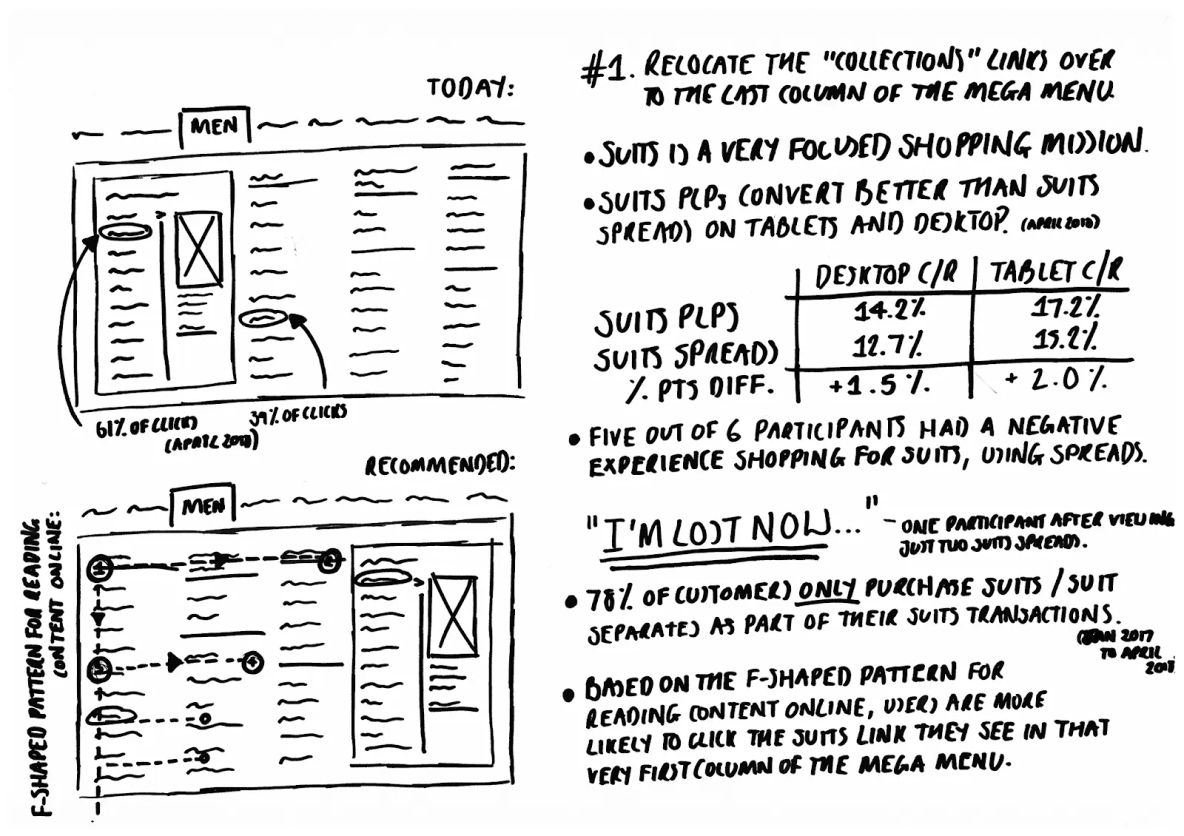 TODAY:
MEN
61% OF CLICKS
(APRIL 2018)
39% OF CLICKS
RECOMMENDED:
MEN
F-SHAPED PATTERN FOR READING
CONTENT ONLINE:
1
2
3
4
#1. RELOCATE THE "COLLECTIONS" LINKS OVER
TO THE LAST COLUMN OF THE MEGA MENU.
• SUITS IS A VERY FOCUSED SHOPPING MISSION.
• SUITS PLPs CONVERT BETTER THAN SUITS
SPREADS ON TABLETS AND DESKTOP. (APRIL 2018)
DESKTOP C/R TABLET C/R
SUITS PLPS 14.2% 17.2%
SUITS SPREADS 12.7% 15.2%
% PTS DIFF. +1.5%. + 2.0%.
• FIVE OUT OF 6 PARTICIPANTS HAD A NEGATIVE
EXPERIENCE SHOPPING FOR SUITS, USING SPREADS.
"I'M LOST NOW..." - ONE PARTICIPANT AFTER VIEWING
JUST TWO SUITS SPREADS.
• 78% OF CUSTOMERS ONLY PURCHASE SUITS / SUIT
SEPARATES AS PART OF THEIR SUITS TRANSACTIONS.
(JAN 2017
TO APRIL
2018
• BASED ON THE F-SHAPED PATTERN FOR
READING CONTENT ONLINE, USERS ARE MORE
LIKELY TO CLICK THE SUITS LINK THEY SEE IN THAT
VERY FIRST COLUMN OF THE MEGA MENU.